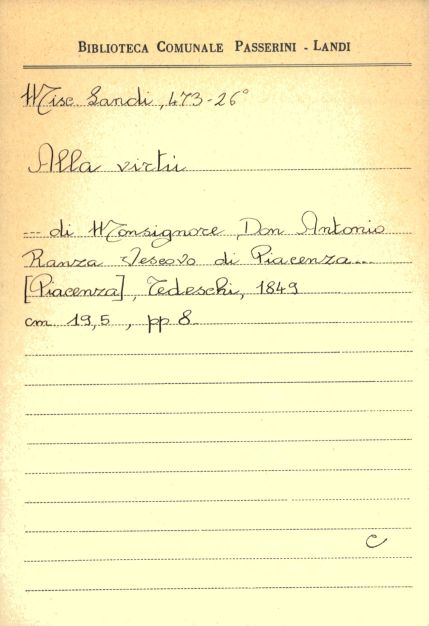 BIBLIOTECA COMUNALE PASSERINI - LANDI
Misc Landi, 473-26°
Alla virtù
--- di Monsignore Don Antonio
Ranza Vescovo di Piacenza...
[Piacenza], Tedeschi, 1849
cm 19,5 , pp 8.
C